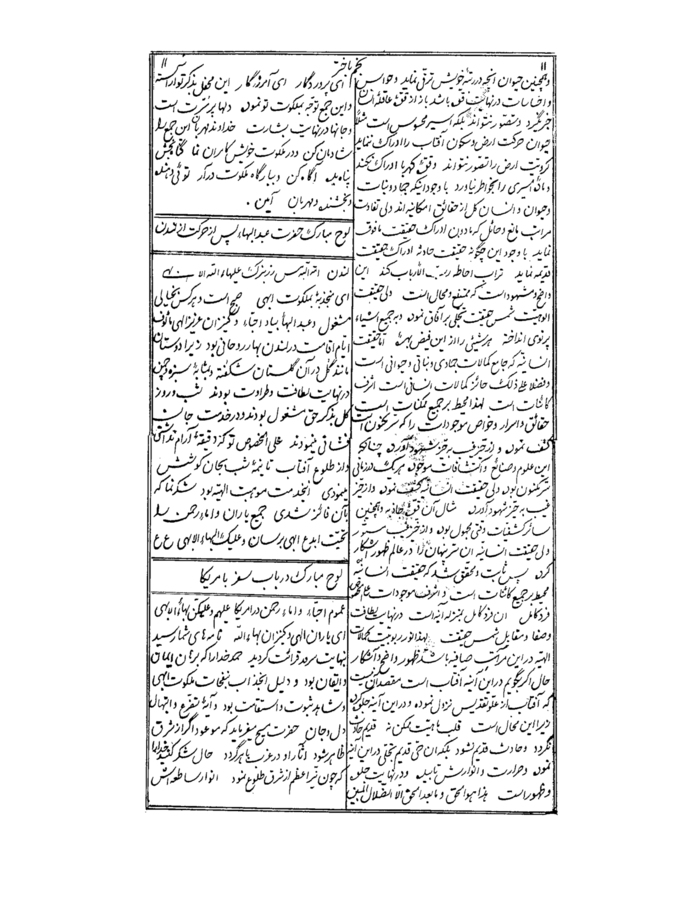 ۱۱
وهمچنین حیوان آنچه در رتبهٔ خویش ترقی نماید و حواس
و احساسات در نهایت قوت باشد باز از قوهٔ عاقلهٔ انسان
خبر نگیرد و تصور نتواند بلکه اسیر محسوس است مثلا
حیوان حرکت ارض و سکون آفتاب را ادراک ننماید
کرویت ارض را تصور نتواند و قوهٔ کهربا ادراک نکند
و مادهٔ اثیری را بخاطر نیاورد با وجود اینکه جماد و نبات
و حیوان و انسان کل از حقائق امکانیه‌اند ولی تفاوت
مراتب مانع و حائل که مادون ادراک حقیقت مافوق
نماید با وجود این چگونه حقیقت حادثه ادراک حقیقت
قدیمه نماید تراب احاطهٔ رب الارباب کند این
واضح و مشهود است که ممتنع و محال است ولی حقیقت
الوهیت شمس حقیقت تجلی بر آفاق نموده و بر جمیع اشیاء
پرتوی انداخته هر شیئی را از این فیض بهره اما حقیقت
انسانیه که جامع کمالات جمادی و نباتی و حیوانی است
و فضلا علی ذلک حائز کمالات انسانی است اشرف
کائنات است لهذا محیط بر جمیع ممکنات است
حقائق و اسرار و خواص موجودات را که سر مکنون است
کشف نموده و از حیز غیب به حیز شهود آورده چنانکه
این علوم و صنائع و اکتشافات موجوده هر یک در زمانی
سر مکنون بوده ولی حقیقت انسانیه کشف نموده و از حیز
غیب به حیز شهود آورده مثال آن قوهٔ جاذبه و همچنین
سائر کشفیات وقتی مجهول بوده و از حیز غیب مستور
ولی حقیقت انسانیه آن سر پنهان را در عالم ظهور آشکار
کرده پس ثابت و محقق شد که حقیقت انسانیه
محیط بر جمیع کائنات است و اشرف موجودات
فرد کامل آن فرد کامل بمنزلهٔ آینه است در نهایت لطافت
و صفا و مقابل شمس حقیقت لهذا نور ربوبیت بکمالات
الهیه در این مرآت صافیه باشد ظهور واضح و آشکار
حال اگر بگوییم در این آینه آفتاب است مقصد آن نیست
که آفتاب از علو تقدیس نزول نموده و در این آینه حلول کرده
زیرا این محال است قلب ماهیت ممکن نه قدیم حادث
نگردد و حادث قدیم نشود بلکه آن حی قدیم تجلی در این آینه
نموده و حرارت و انوارش تابیده و در نهایت جلوه
و ظهور است هذا هو الحق و ما بعد الحق الا الضلال المبین
نجم باختر
۱۱
ای پروردگار ای آمرزگار این محفل بذکر تو آراسته
و این جمع توجه بملکوت تو نموده دلها پر مسرت است
و جانها در نهایت بشارت خداوند مهربان این جمع را
شادمان کن و در ملکوت خویش کامران نما گناه ببخش
پناه بده آگاه کن و ببارگاه ملکوت درآر توئی دهنده
و بخشنده و مهربان آمین .
لوح مبارک حضرت عبدالبهاء پس از حرکت از لندن
لندن امة الله مس رزنبرگ علیها بهاء الله الابهی
ای منجذبهٔ بملکوت ابهی صبح است و هر کس بخیالی
مشغول و عبدالبهاء بیاد احباء و کنیزان عزیز الهی مألوف
ایام اقامت در لندن بهار روحانی بود زیرا دوستان
مانند گل در آن گلستان شکفته و بمثابهٔ سبزه و چمن
در نهایت لطافت و طراوت بودند شب و روز
کل بذکر حق مشغول بودند و در خدمت جان
فشانی مینمودند علی الخصوص تو که دقیقهٔ آرام نداشتی
و از طلوع آفتاب تا نیمهٔ شب بجان کوشش
مینمودی این خدمت موهبت الهیه بود شکر نما که
بآن فائز شدی جمیع یاران و اماء رحمن را
تحیت ابدع ابهی برسان و علیک البهاء الابهی ع ع
لوح مبارک در باب سفر بامریکا
عموم احباء و اماء رحمن در امریکا علیهم و علیهن بهاء الله الابهی
ای یاران الهی و کنیزان بهاء الله نامه‌های شما رسید
نهایت سرور قرائت گردید حمد خدا را که برهان ایمان
و ایقان بود و دلیل انجذاب بنفحات ملکوت الهی
و شاهد ثبوت و استقامت بود و آیهٔ تضرع و ابتهال
دل و جان حضرت مسیح میفرماید که موعود اگر از شرق
ظاهر شود آثار او در غرب باهر گردد حال شکر کنید خدا را
که چون نیر اعظم از شرق طلوع نمود انوار ساطعه‌اش